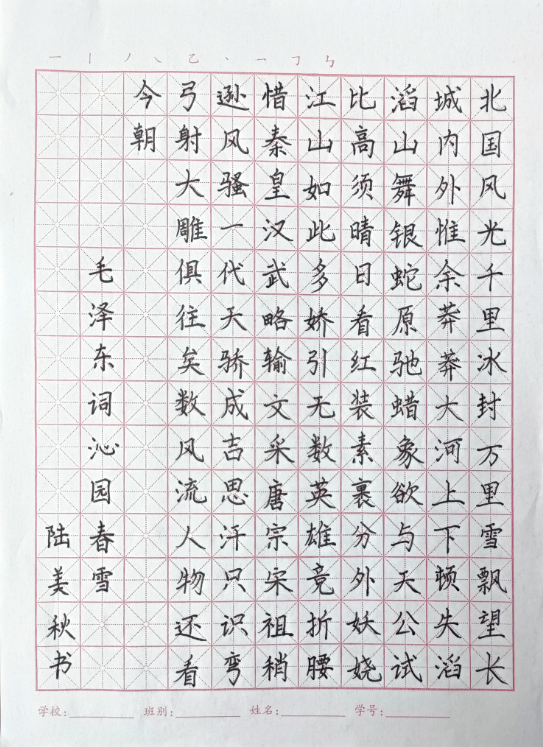 一 丨 丿 ㇏ 乙 丶 乛 ㇆ ㄣ
北国风光千里冰封万里雪飘望长
城内外惟余莽莽大河上下顿失滔
滔山舞银蛇原驰蜡象欲与天公试
比高须晴日看红装素裹分外妖娆
江山如此多娇引无数英雄竞折腰
惜秦皇汉武略输文采唐宗宋祖稍
逊风骚一代天骄成吉思汗只识弯
弓射大雕俱往矣数风流人物还看
今朝
毛泽东词沁园春雪
陆美秋书
学校： 班别： 姓名： 学号：